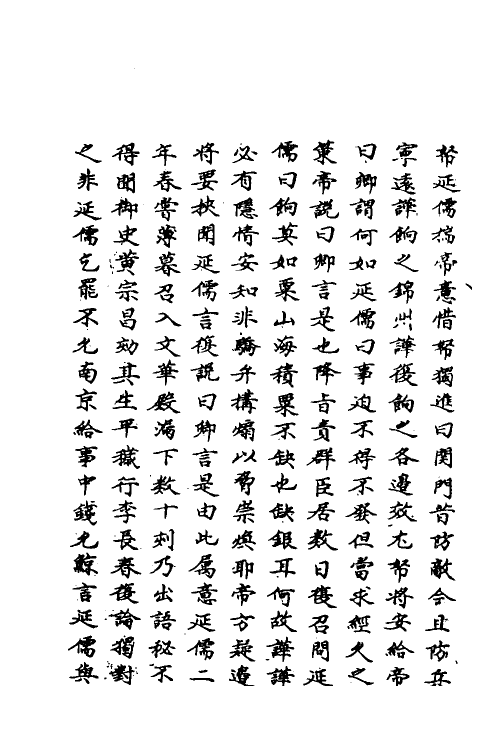 帑延儒揣帝意借帑獨進曰関門昔防敵今且防兵
寧遠譁餉之錦州譁復餉之各邊效尤帑將安給帝
曰卿謂何如延儒曰事迫不得不發但當求經久之
策帝説曰卿言是也降旨責群臣居数日復召問延
儒曰餉莫如粟山海積粟不缺也缺銀耳何故譁譁
必有隱情安知非驕弁搆煽以脅崇煥耶帝方疑邊
將要挾聞延儒言復説曰卿言是由此属意延儒二
年春嘗薄暮召入文華殿漏下数十刻乃出語秘不
得聞御史黄宗昌劾其生平穢行李長春復論獨對
之非延儒乞罷不允南京給事中錢允鯨言延儒與